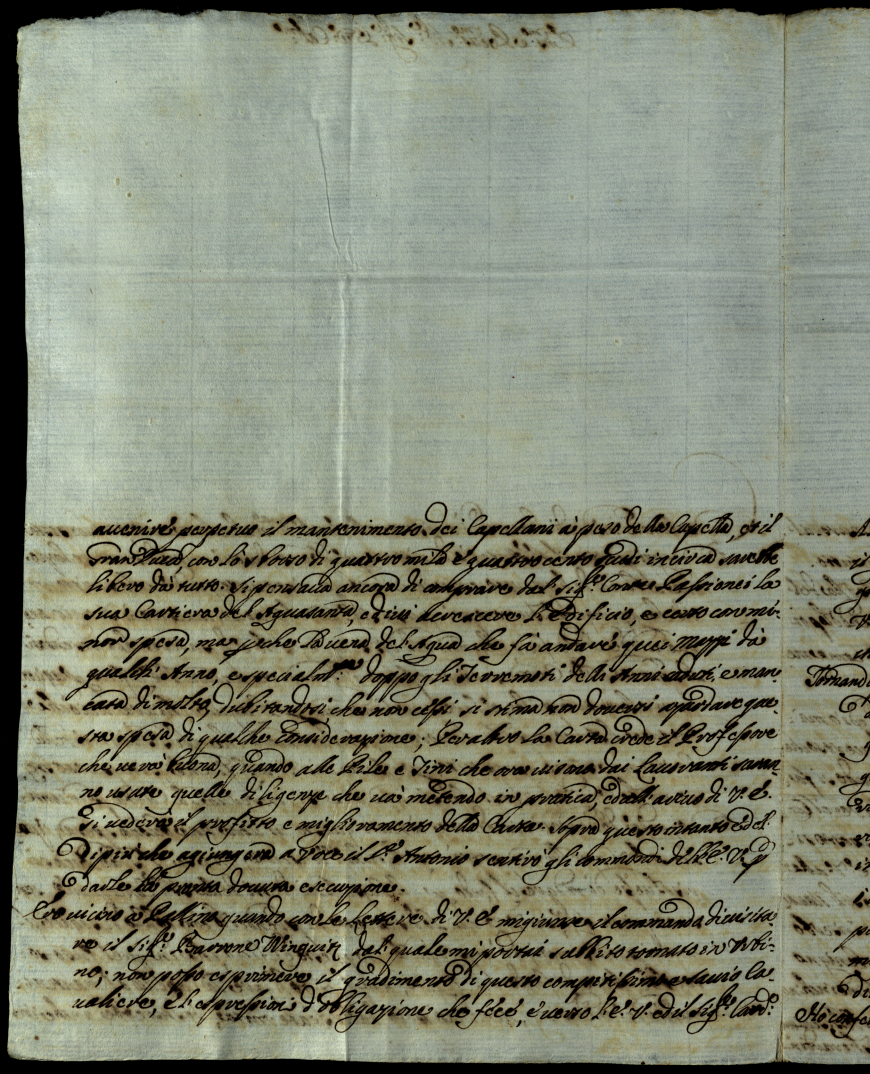 avenire perpetuo il mantenimento dei Capellani à peso della Capella, et il
con lo sborso di quattro mila e quattro cento scudi in circa sarebbe
libero da tutto. Si pensava ancora di comprare dal Sigr. Conte Passionei la
sua Cartiera del Aquasanta, ed ivi accrescere l'Edificio, e certo con mi-
nor spesa, ma perche la vena del Aqua che fà andare quei Mazzi dà
qualch' Anno, e specialmte. doppo gli Terremoti delli Anni è man-
cata di molto, dubitandosi che non cessi si stima non doversi azardare que-
sta spesa di qualche considerazione; Peraltro la Carta crede il Professore
che verà buona, quando alle Pile e Tini che ora usano dai Lavoranti saran-
no usate quelle diligenze che và metendo in pratica, ed all'arivo di V. E.
si vederà il profitto e miglioramento della Carta. Sopra questo intanto e del
di più che agiungerà a voce il Sr. Antonio sentirò gli commandi dell' E. V. p
darle la pronta dovuta esecuzione.
Ero vicino à quando con le Lettere di V. E. mi giunse il commando di visita-
re il Sigr. Barrone dal quale mi portai subbito tornato in Urbi-
no; non posso esprimere il gradimento di questo compitissimo e savio Ca-
valiere, e l'espressioni d'obligazione che fece, e verso l'E. V. ed il Sigr. Card.